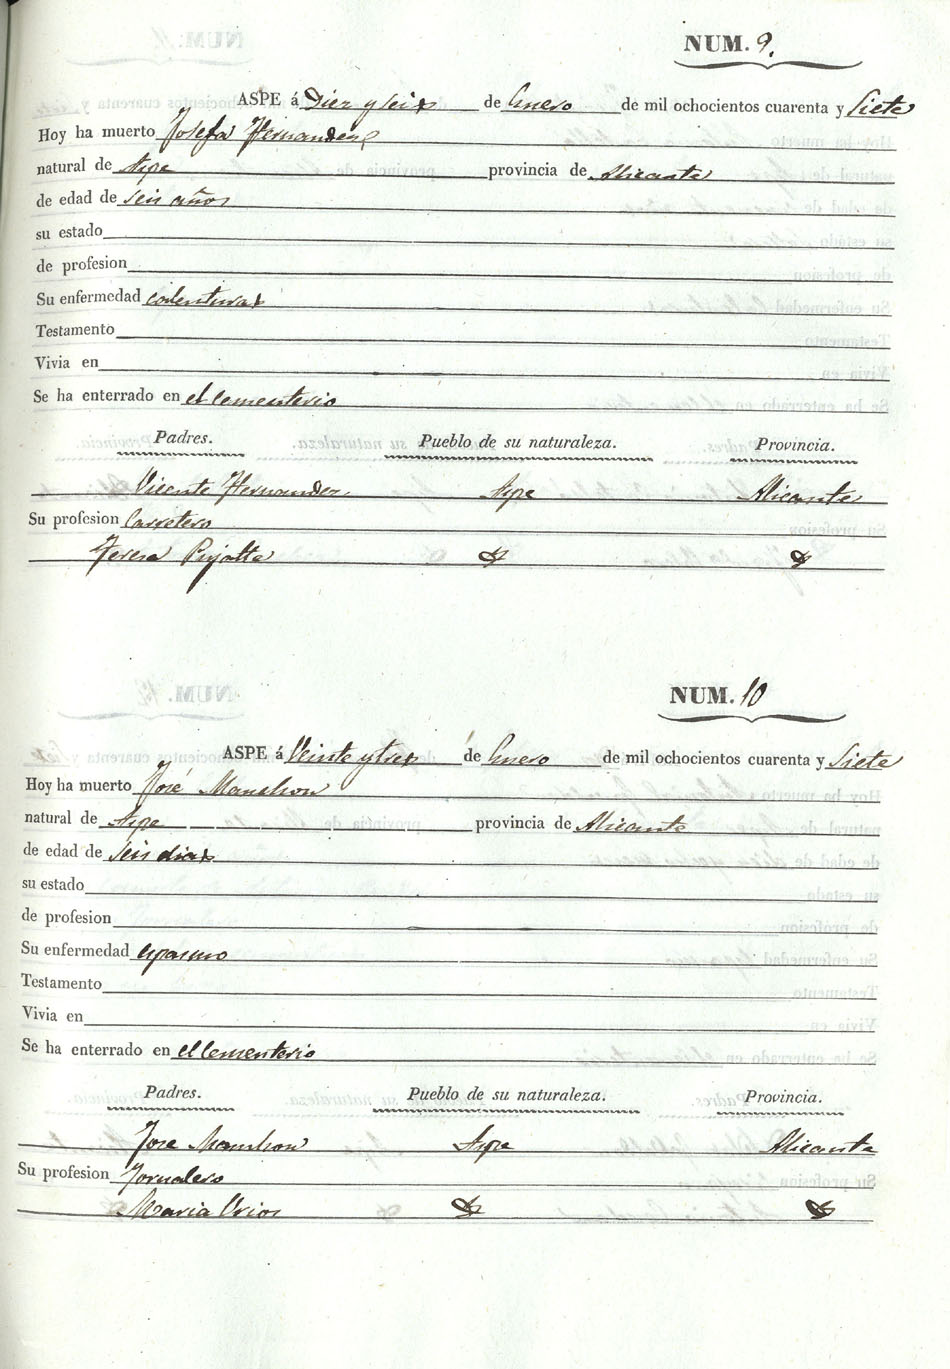 NUM. 9.
ASPE á Diez y seis de Enero de mil ochocientos cuarenta y Siete
Hoy ha muerto Josefa Hernandez
natural de Aspe provincia de Alicante
de edad de seis años
su estado
de profesion
Su enfermedad calenturas
Testamento
Vivia en
Se ha enterrado en el Cementerio
Padres. Pueblo de su naturaleza. Provincia.
Vicente Hernandez Aspe Alicante
Su profesion Carretero
Teresa
NUM. 10
ASPE á Veinte y tres de Enero de mil ochocientos cuarenta y Siete
Hoy ha muerto José Manchon
natural de Aspe provincia de Alicante
de edad de seis dias
su estado
de profesion
Su enfermedad espasmo
Testamento
Vivia en
Se ha enterrado en el Cementerio
Padres. Pueblo de su naturaleza. Provincia.
Jose Manchon Aspe Alicante
Su profesion Jornalero
Maria Urios